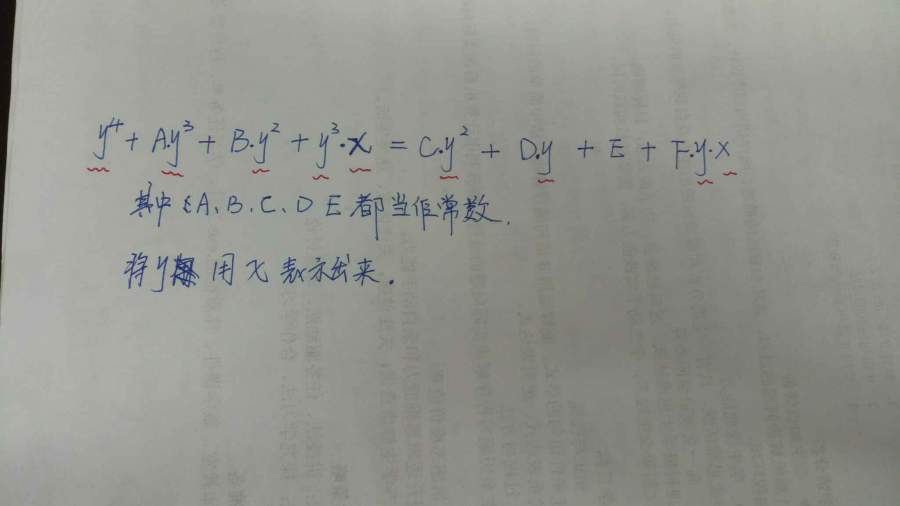 y⁴ + A.y³ + B.y² + y³.x = C.y² + D.y + E + F.y.x
其中 A、B、C、D E 都当作常数.
将y 用 x 表示出来.